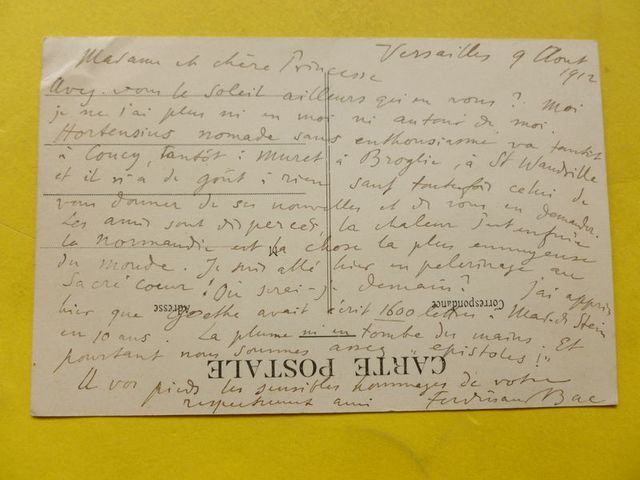 Versailles 9 Aout
1912
Madame et chère Princesse
Avez-vous le soleil ailleurs qu'en vous? Moi
je ne l'ai plus ni en moi ni autour de moi.
Hortensius nomade sans enthousiasme va tantôt
à Coucy, tantôt à Muret à Broglie, à St Wandrille
et il n'a de goût à rien sauf toutefois celui de
vous donner de ses nouvelles et de vous en demander.
Les amis sont dispersés, la chaleur s'est enfuie
la Normandie est la chose la plus ennuyeuse
du monde. Je suis allé hier en pelerinage au
Sacré Coeur! Où serai-je demain? J'ai appris
hier que Goethe avait écrit 1600 lettres à Mad. de Stein
en 10 ans. La plume m'en tombe des mains. Et
pourtant nous sommes assez "epistoles!"
A vos pieds les sensibles hommages de votre
respectueux ami Ferdinand Bac
Adresse
Correspondance
CARTE POSTALE